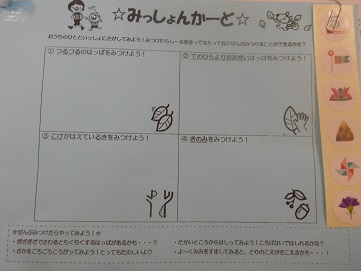 ☆みっしょんかーど☆
おうちのひとといっしょにさがしてみよう！みつけたらしーるをはってもらってね♡ぜんぶみつけることができるかな？
① つるつるのはっぱをみつけよう！
② てのひらよりおおきいはっぱをみつけよう！
③ こけがはえているきをみつけよう！
④ きのみをみつけよう！
☆ぜんぶみつけたらやってみよう！☆
・ぎざぎざでさわるとちくちくするはっぱがあるかも・・・？
・さかをごろごろころがってみよう！とってもたのしいよ♡
・たかいところからはしってみよう！ころばないではしれるかな？
・よ～くみみをすましてみると、とりのこえがきこえるかも・・・！